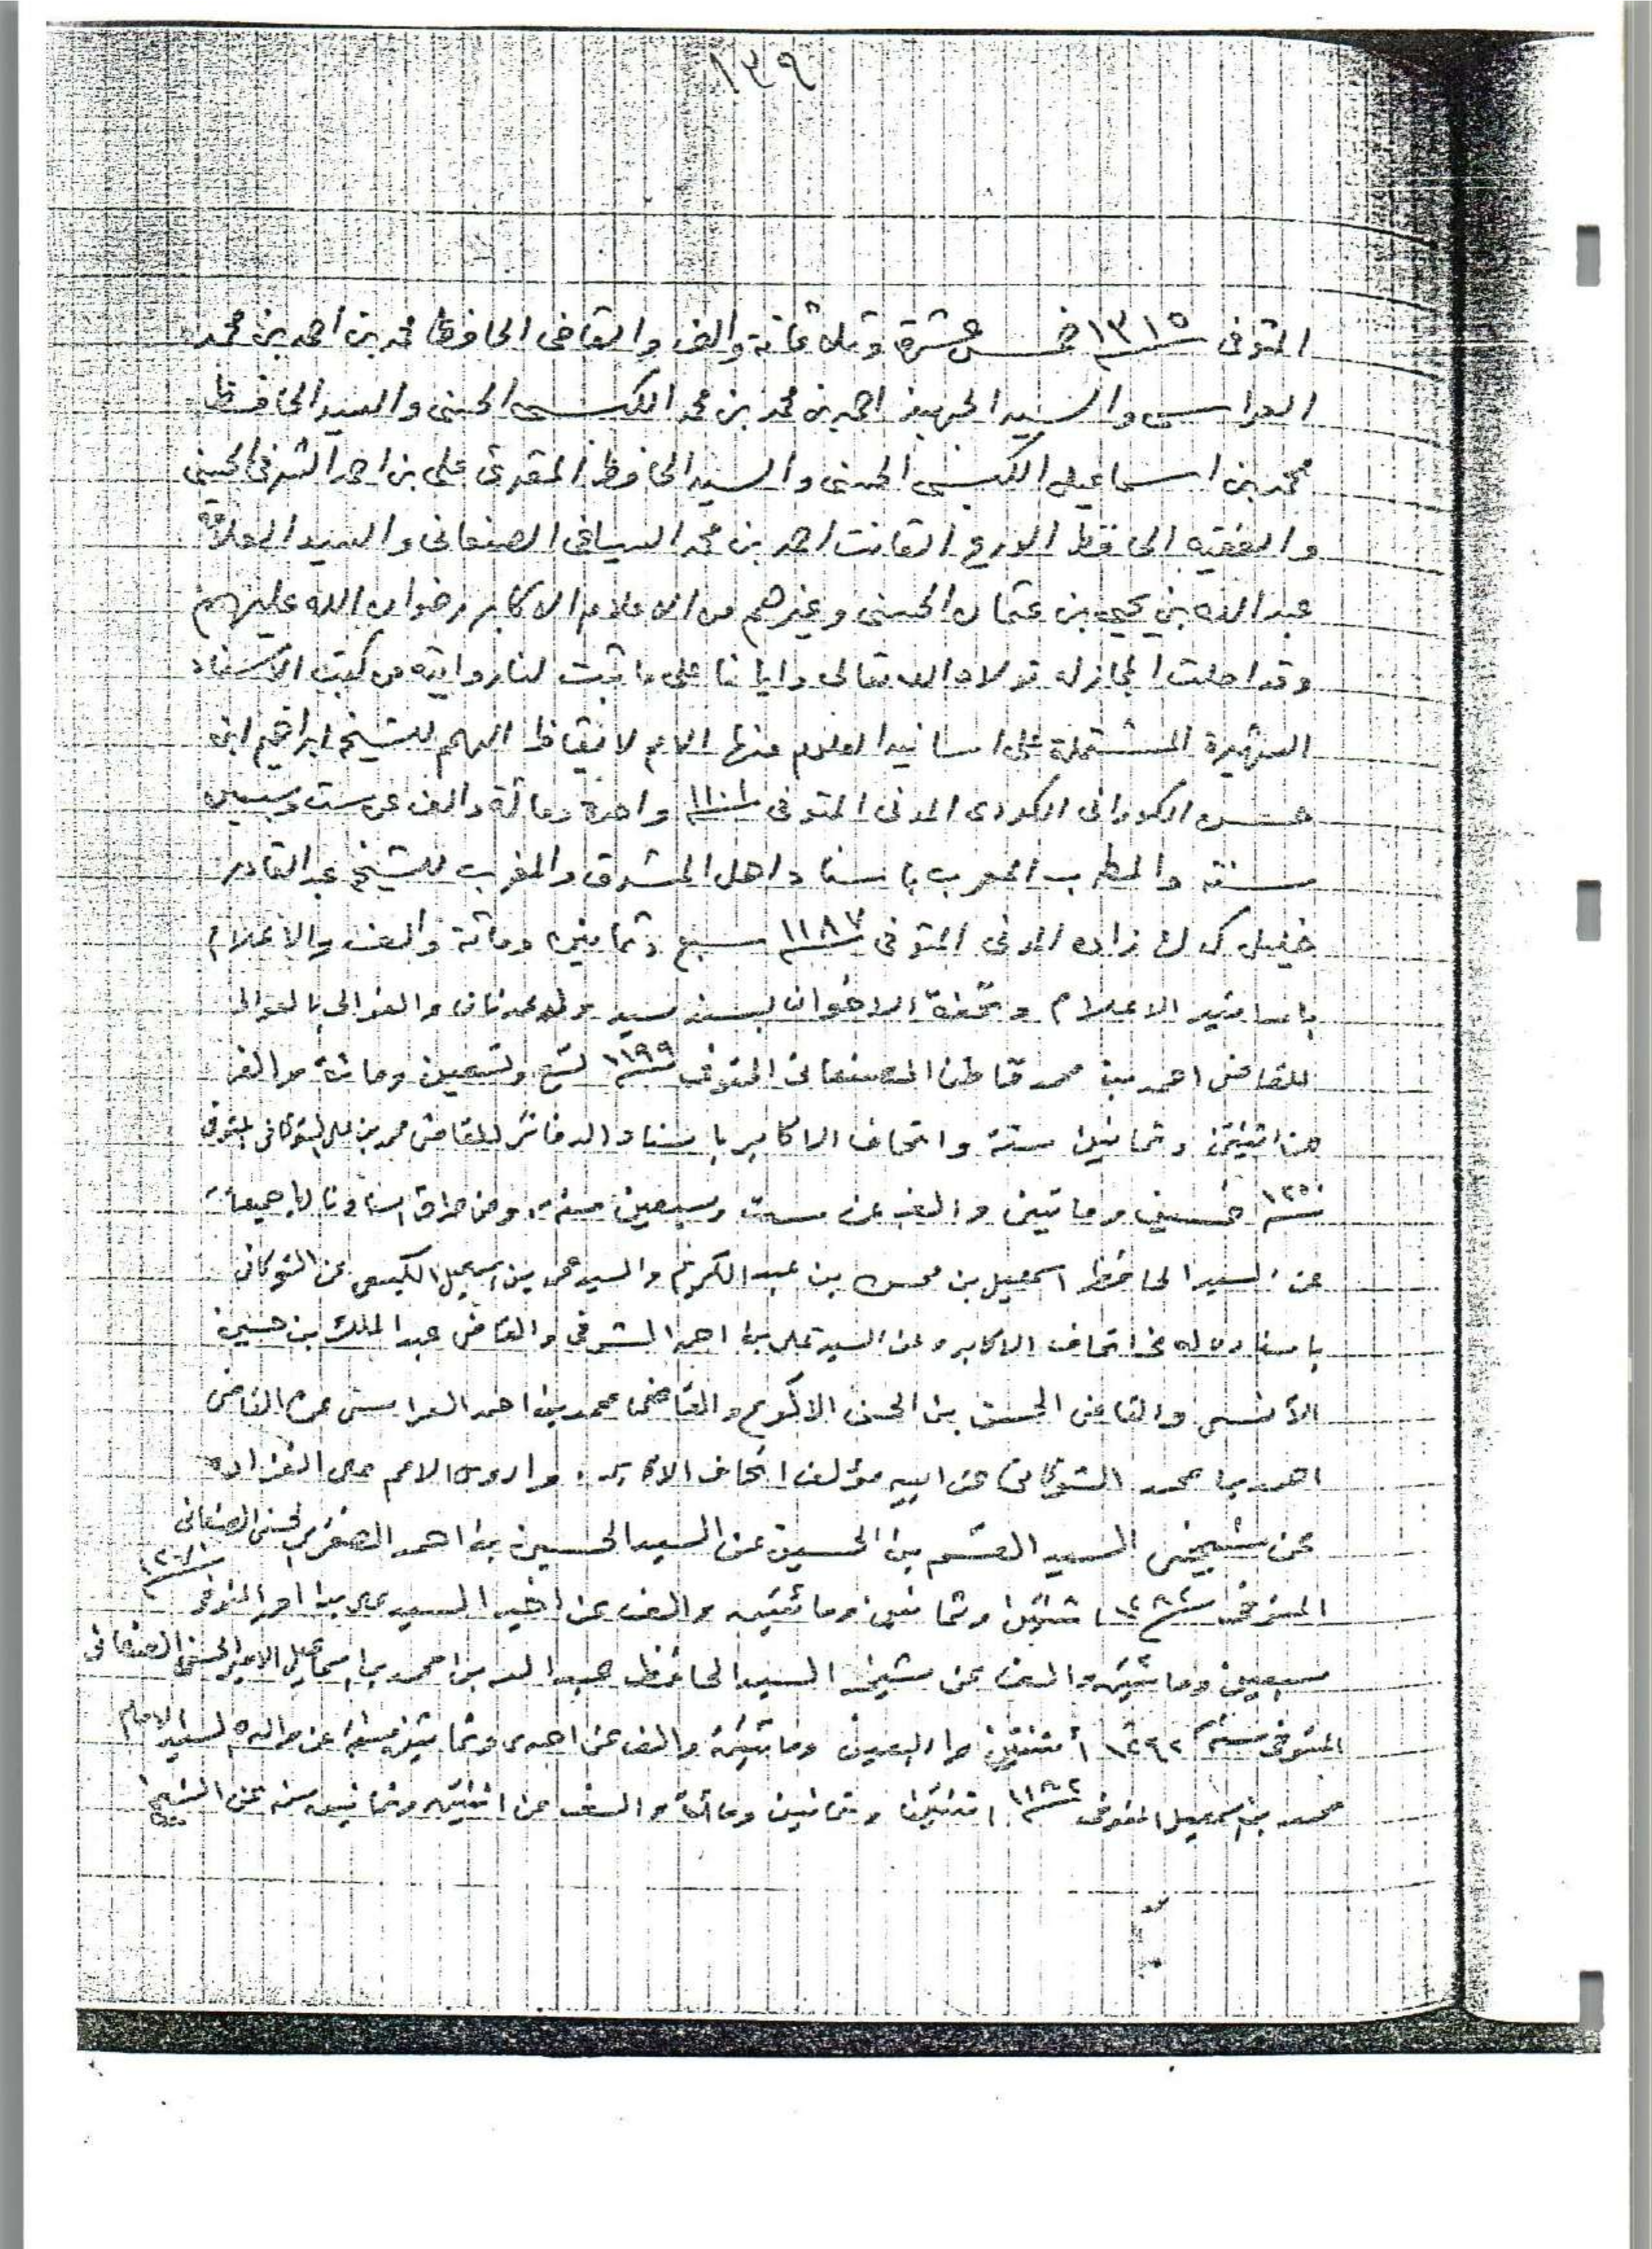 ١٣٩
المتوفى ١٣١٥ خمس عشرة وثلاثمائة وألف والقاضي الحافظ محمد بن احمد بن محمد
العراسي والسيد الجهبذ احمد بن محمد بن محمد الكبسي الحسني والسيد الحافظ
محمد بن اسماعيل الكبسي الحسني والسيد الحافظ المقرئ علي بن احمد الشرفي الحسني
والفقيه الحافظ الاورع القانت احمد بن محمد السياغي الصنعاني والسيد العلامة
عبد الله بن يحيى بن عثمان الحسني وغيرهم من الاعلام الاكابر رضوان الله عليهم
وقد احلت المجاز له تولاه الله تعالى وايانا على ما ثبت لنا روايته من كتب الاسناد
الشهيرة المشتملة على اسانيد العلوم منها الامم لايقاظ الهمم للشيخ ابراهيم ابن
حسن الكوراني الكردي المدني المتوفى ١١٠١ واحدة ومائة والف عن ست وسبعين
سنة والمطرب المعرب باسناد اهل المشرق والمغرب للشيخ عبد القادر
خليل كدك زاده المدني المتوفى ١١٨٧ سبع وثمانين ومائة والف والاعلام
باسانيد الاعلام وتحفة الاخوان بسند سيد ولد عدنان والغوالي بالعوالي
للقاضي احمد بن محمد قاطن الصنعاني المتوفى ١١٩٩ تسع وتسعين ومائة والف
عن اثنتين وثمانين سنة واتحاف الاكابر باسناد الدفاتر للقاضي محمد بن علي الشوكاني المتوفى
١٢٥٠ خمسين ومائتين والف عن ست وسبعين سنة ومن طرق اسنادنا لها جميعا
عن السيد الحافظ اسمعيل بن محسن بن عبد الكريم والسيد محمد بن اسمعيل الكبسي عن الشوكاني
باسناده له في اتحاف الاكابر وعن السيد علي بن احمد الشرفي والقاضي عبد الملك بن حسين
الآنسي والقاضي الحسين بن الحسن الاكوع والقاضي محمد بن احمد العراسي عن القاضي
احمد بن محمد الشوكاني عن ابيه مؤلف اتحاف الاكابر واروي الامم على انفراده
عن شيخي السيد القسم بن الحسين عن السيد الحسين بن احمد الظفري الحسني الصنعاني
المتوفى ١٢٨٢ اثنتين وثمانين ومائتين والف عن اخيه السيد علي بن احمد المتوفى ١٢٧٠
سبعين ومائتين والف عن شيخه السيد الحافظ عبد الله بن محمد بن اسماعيل الامير الحسني الصنعاني
المتوفى سنة ١٢٤٢ اثنتين واربعين ومائتين والف عن احدى وثمانين سنة عن والده السيد الامام
محمد بن اسمعيل المتوفى ١١٨٢ اثنتين وثمانين ومائة والف عن اثنتين وثمانين سنة عن الشيخ